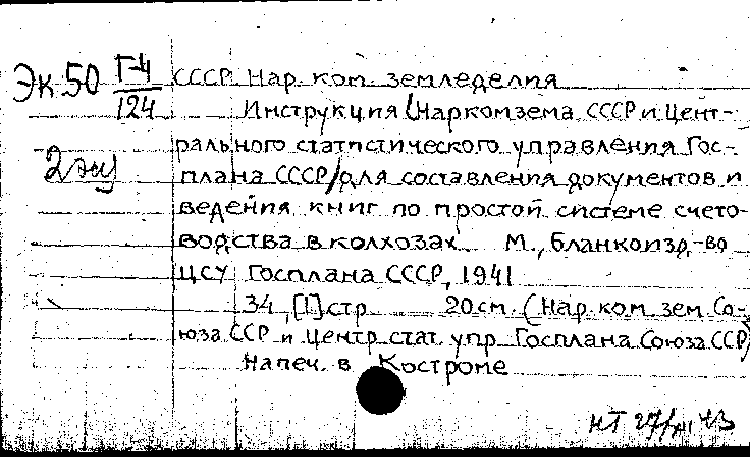 Эк 50 Г-4/124 СССР. Нар. ком. земледелия
Инструкция (Наркомзема СССР и Цент-
рального статистического управления Гос-
2 экз
плана СССР) для составления документов и
ведения книг по простой системе счето-
водства в колхозах М., Бланкоизд-во
ЦСУ Госплана СССР, 1941
34, [1] стр 20 см. (Нар. ком. зем. Со-
юза ССР и Центр. стат. упр Госплана Союза ССР)
Напеч. в Костроме
НТ 27/